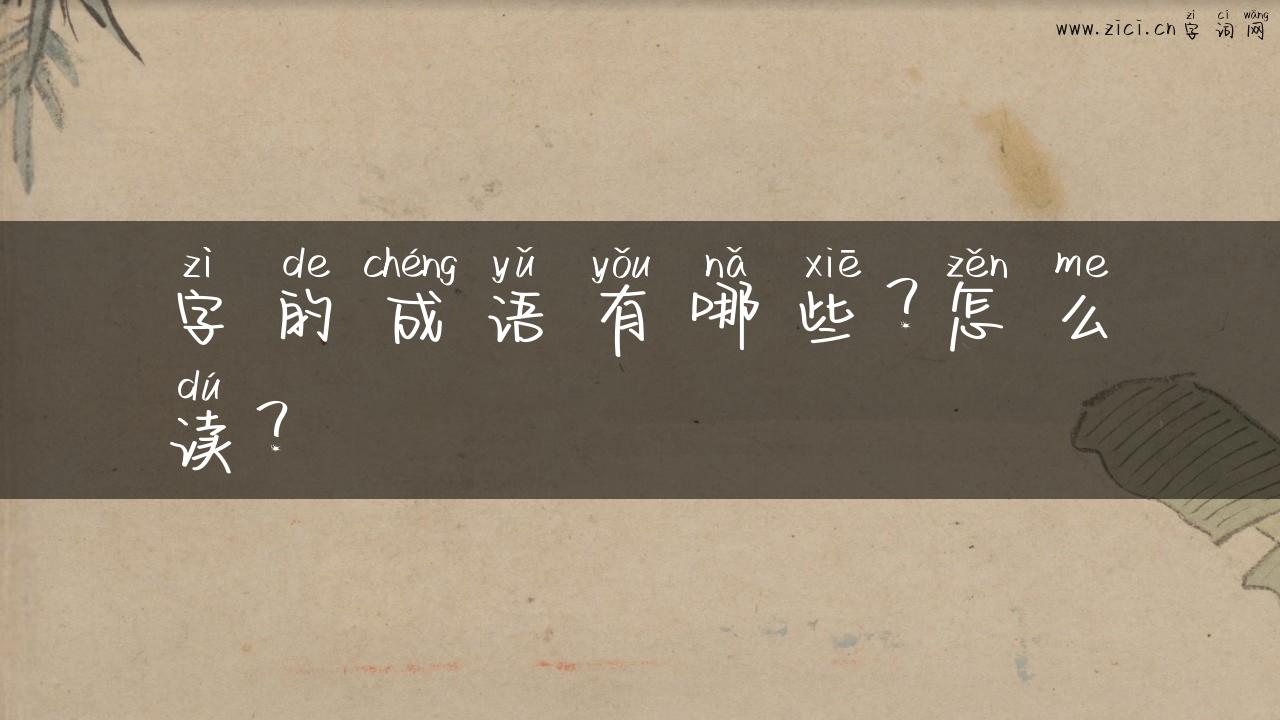 zì cí wǎng
www.zici.cn 字 词 网
zì de chéng yǔ yǒu nǎ xiē zěn me
字 的 成 语 有 哪 些 ? 怎 么
dú
读 ?